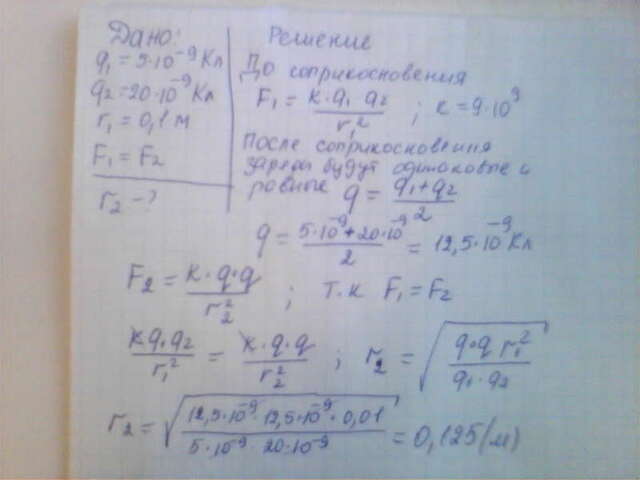 Дано:
q₁ = 5·10⁻⁹ Кл
q₂ = 20·10⁻⁹ Кл
r₁ = 0,1 м
F₁ = F₂
r₂ - ?
Решение
До соприкосновения
F₁ = K·q₁ q₂ / r₁² ; к = 9·10⁹
После соприкосновения
заряды будут одинаковые и
равные q = q₁+q₂ / 2
q = 5·10⁻⁹+20·10⁻⁹ / 2 = 12,5·10⁻⁹ Кл
F₂ = K·q·q / r₂² ; т.к F₁ = F₂
kq₁q₂ / r₁² = k·q·q / r₂² ; r₂ = √(q·q r₁² / q₁·q₂)
r₂ = √(12,5·10⁻⁹·12,5·10⁻⁹·0,01 / 5·10⁻⁹·20·10⁻⁹) = 0,125(м)